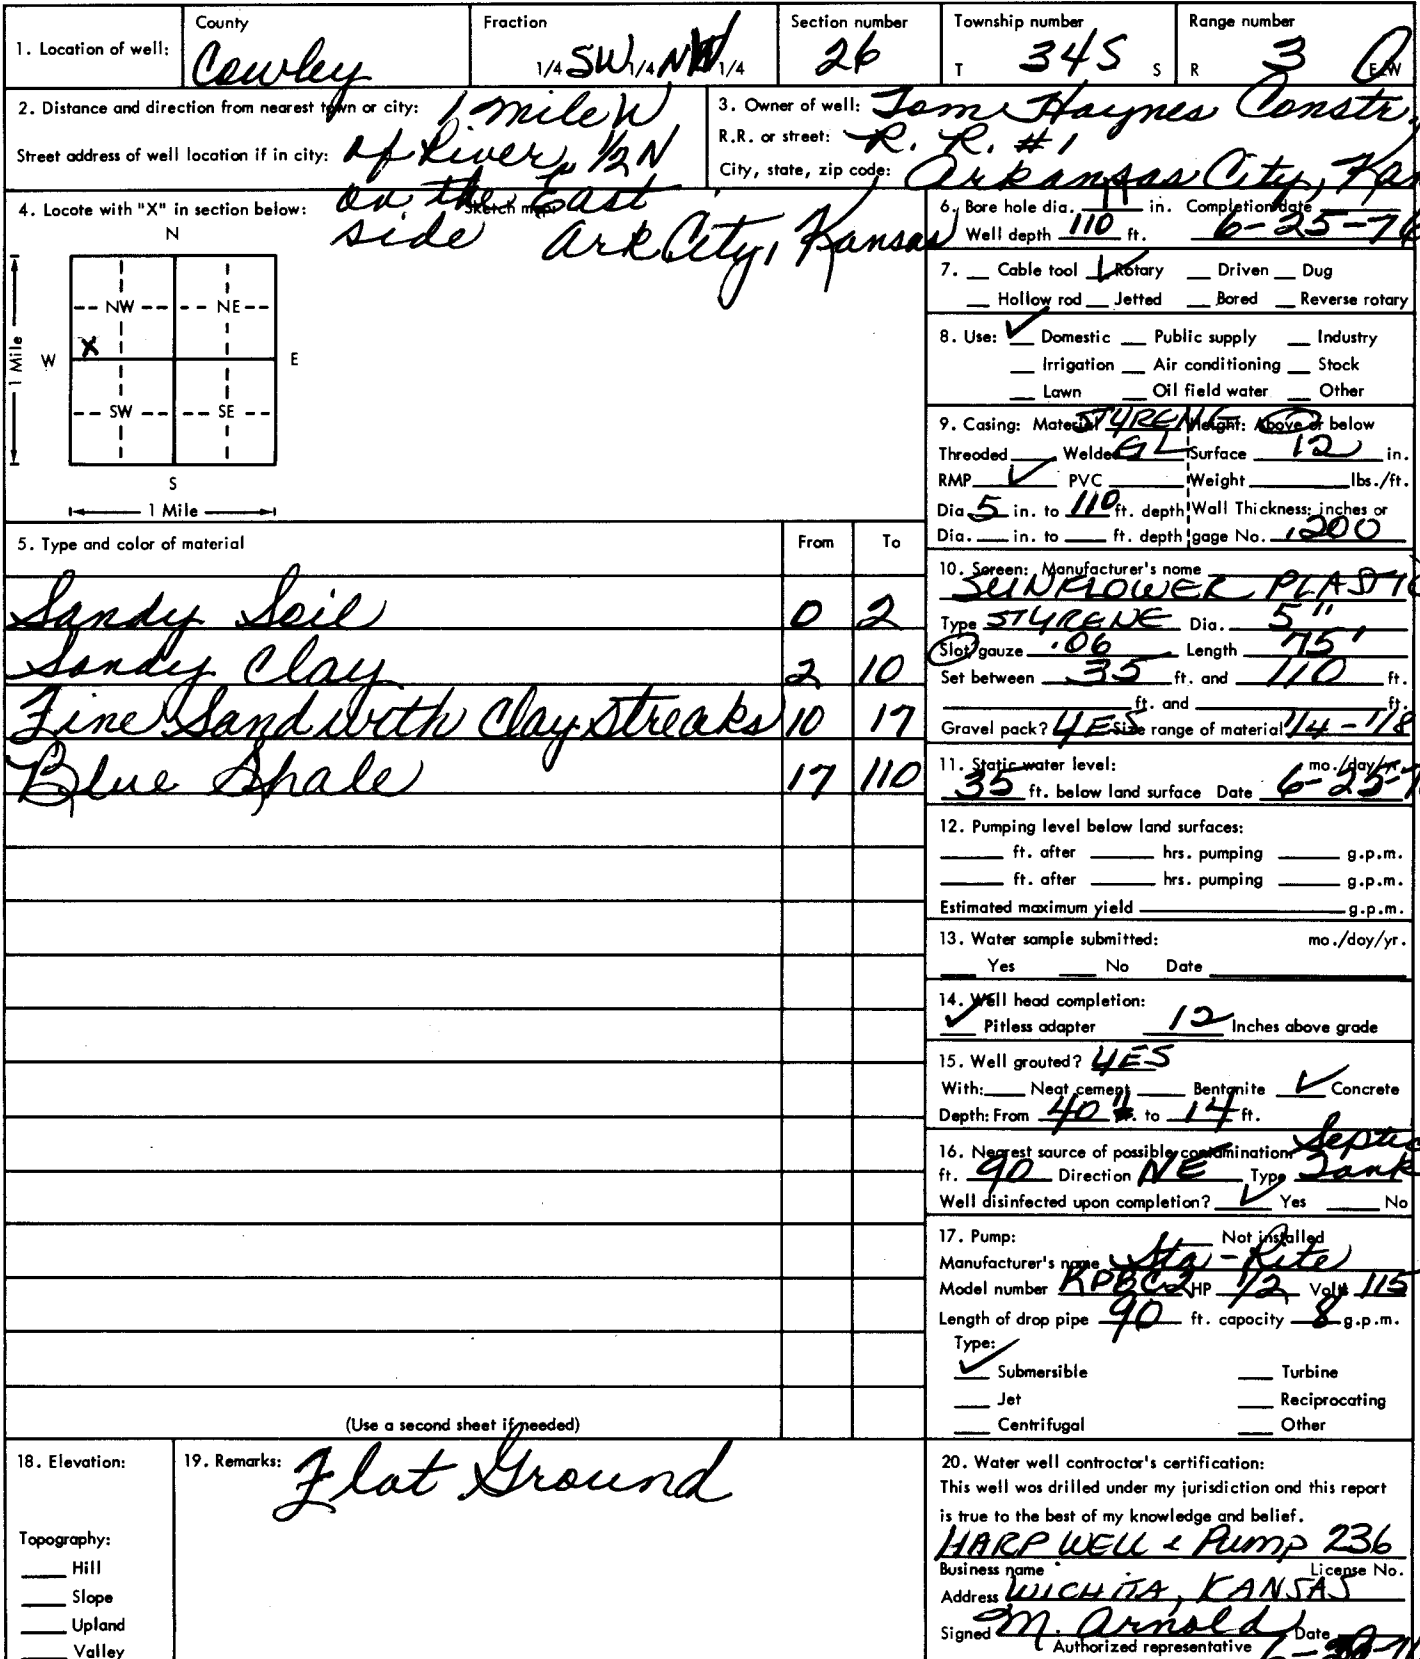 1. Location of well: County Cowley Fraction 1/4 SW 1/4 NW 1/4 Section number 26 Township number T 34S S Range number R 3 E/W
2. Distance and direction from nearest town or city: 1 mile W
Street address of well location if in city: of River, 1/2 N
on the East
side Ark City, Kansas
3. Owner of well: Tom Haynes Constr.
R.R. or street: R. R. #1
City, state, zip code: Arkansas City, Kan
4. Locate with "X" in section below: Sketch map:
N
NW NE
X
W E
1 Mile
SW SE
S
1 Mile
5. Type and color of material From To
Sandy Soil 0 2
Sandy Clay 2 10
Fine Sand with Clay Streaks 10 17
Blue Shale 17 110
(Use a second sheet if needed)
6. Bore hole dia. 11 in. Completion date
Well depth 110 ft. 6-25-76
7. Cable tool ✓ Rotary Driven Dug
Hollow rod Jetted Bored Reverse rotary
8. Use: ✓ Domestic Public supply Industry
Irrigation Air conditioning Stock
Lawn Oil field water Other
9. Casing: Material STYRENE Height: Above or below
Threaded Welded GL Surface 12 in.
RMP ✓ PVC Weight lbs./ft.
Dia. 5 in. to 110 ft. depth Wall Thickness: inches or
Dia. in. to ft. depth gage No. .200
10. Screen: Manufacturer's name
SUNFLOWER PLASTIC
Type STYRENE Dia. 5"
Slot/gauze .06 Length 75'
Set between 35 ft. and 110 ft.
ft. and ft.
Gravel pack? YES Size range of material 1/4 - 1/8
11. Static water level: mo./day/yr.
35 ft. below land surface Date 6-25-7
12. Pumping level below land surfaces:
ft. after hrs. pumping g.p.m.
ft. after hrs. pumping g.p.m.
Estimated maximum yield g.p.m.
13. Water sample submitted: mo./day/yr.
Yes No Date
14. Well head completion:
✓ Pitless adapter 12 Inches above grade
15. Well grouted? YES
With: Neat cement Bentonite ✓ Concrete
Depth: From 40" to 14 ft.
16. Nearest source of possible contamination: Septic
ft. 90 Direction NE Type Tank
Well disinfected upon completion? ✓ Yes No
17. Pump: Not installed
Manufacturer's name Sta-Rite
Model number KPBC2 HP 1/2 Volts 115
Length of drop pipe 90 ft. capacity 8 g.p.m.
Type:
✓ Submersible Turbine
Jet Reciprocating
Centrifugal Other
18. Elevation:
Topography:
Hill
Slope
Upland
Valley
19. Remarks: Flat Ground
20. Water well contractor's certification:
This well was drilled under my jurisdiction and this report
is true to the best of my knowledge and belief.
HARP WELL & PUMP 236
Business name License No.
Address WICHITA, KANSAS
Signed M. Arnold Date
Authorized representative